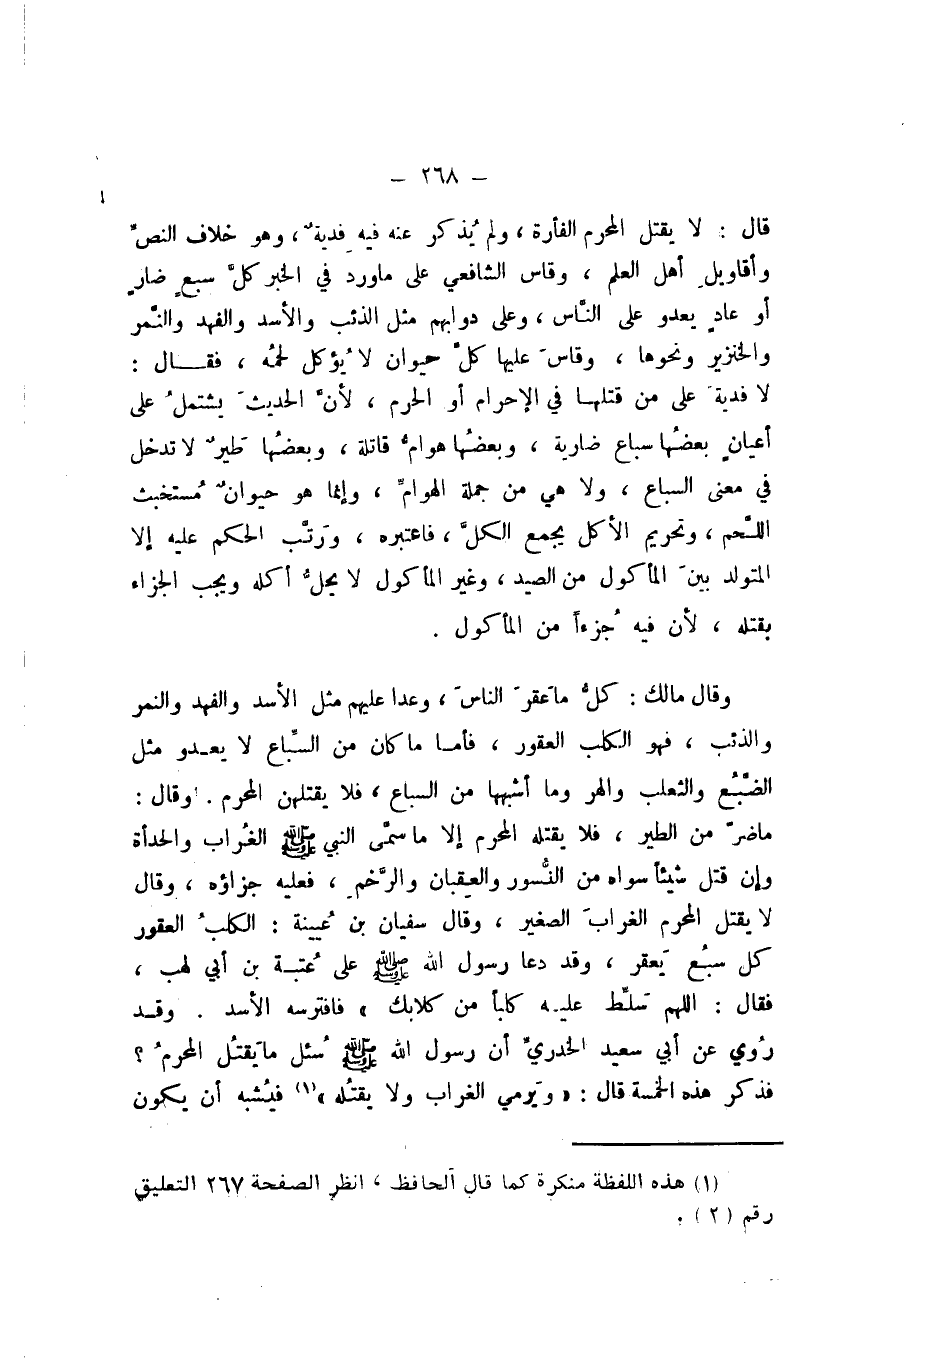 — ٢٦٨ —
قال : لا يقتل المحرم الفأرة ، ولم يُذكر عنه فيه فدية ٌ ، وهو خلاف النصّ
وأقاويلِ أهل العلم ، وقاس الشافعي على ماورد في الخبر كلَّ سبعٍ ضارٍ
أو عادٍ يعدو على النَّاس ، وعلى دوابهم مثل الذئب والأسد والفهد والنَّمر
والخنزير ونحوها ، وقاسَ عليها كلَّ حيوان لا يُؤكل لحمُه ، فقــال :
لا فديةَ على من قتلهـا في الإحرام أو الحرم ، لأنَّ الحديثَ يشتملُ على
أعيانٍ بعضُها سباع ضارية ، وبعضُها هوامُّ قاتلة ، وبعضُها طَيرٌ لا تدخل
في معنى السباع ، ولا هي من جملة الهوامِّ ، وإنما هو حيوانٌ مُستخبث
اللَّحم ، وتحريم الأكل يجمع الكلَّ ، فاعتبره ، ورَتَّب الحكم عليه إلا
المتولد بينَ المأكول من الصيد ، وغير المأكول لا يحلُّ أكله ويجب الجزاء
بقتله ، لأن فيه جُزءاً من المأكول .
وقال مالك : كلُّ ماعَقرَ الناسَ ، وعدا عليهم مثل الأسد والفهد والنمر
والذئب ، فهو الكلب العقور ، فأمـا ماكان من السِّباع لا يعـدو مثل
الضَّبُع والثعلب والهر وما أشبهها من السباع ، فلا يقتلهن المحرم . وقال :
ماضرَّ من الطير ، فلا يقتله المحرم إلا ماسمَّى النبي ﷺ الغُراب والحدأة
وإن قتل شيئاً سواه من النُّسور والعِقبان والرَّخمِ ، فعليه جزاؤه ، وقال
لا يقتل المحرم الغرابَ الصغير ، وقال سفيان بن عُيينة : الكلبُ العقور
كل سبُع يَعقر ، وقد دعا رسول الله ﷺ على عُتبـة بن أبي لهب ،
فقال : اللهم سَلِّط عليـه كلباً من كلابك » فافترسه الأسد . وقـد
رُوي عن أبي سعيد الخدريّ أن رسول الله ﷺ سُئل مايَقتُل المحرمُ ؟
فذكر هذه الخمسة قال : « ويَرمي الغراب ولا يقتُله »(١) فيُشبه أن يكون
(١) هذه اللفظة منكرة كما قال الحافظ ، انظر الصفحة ٢٦٧ التعليق
رقم ( ٢ ) .